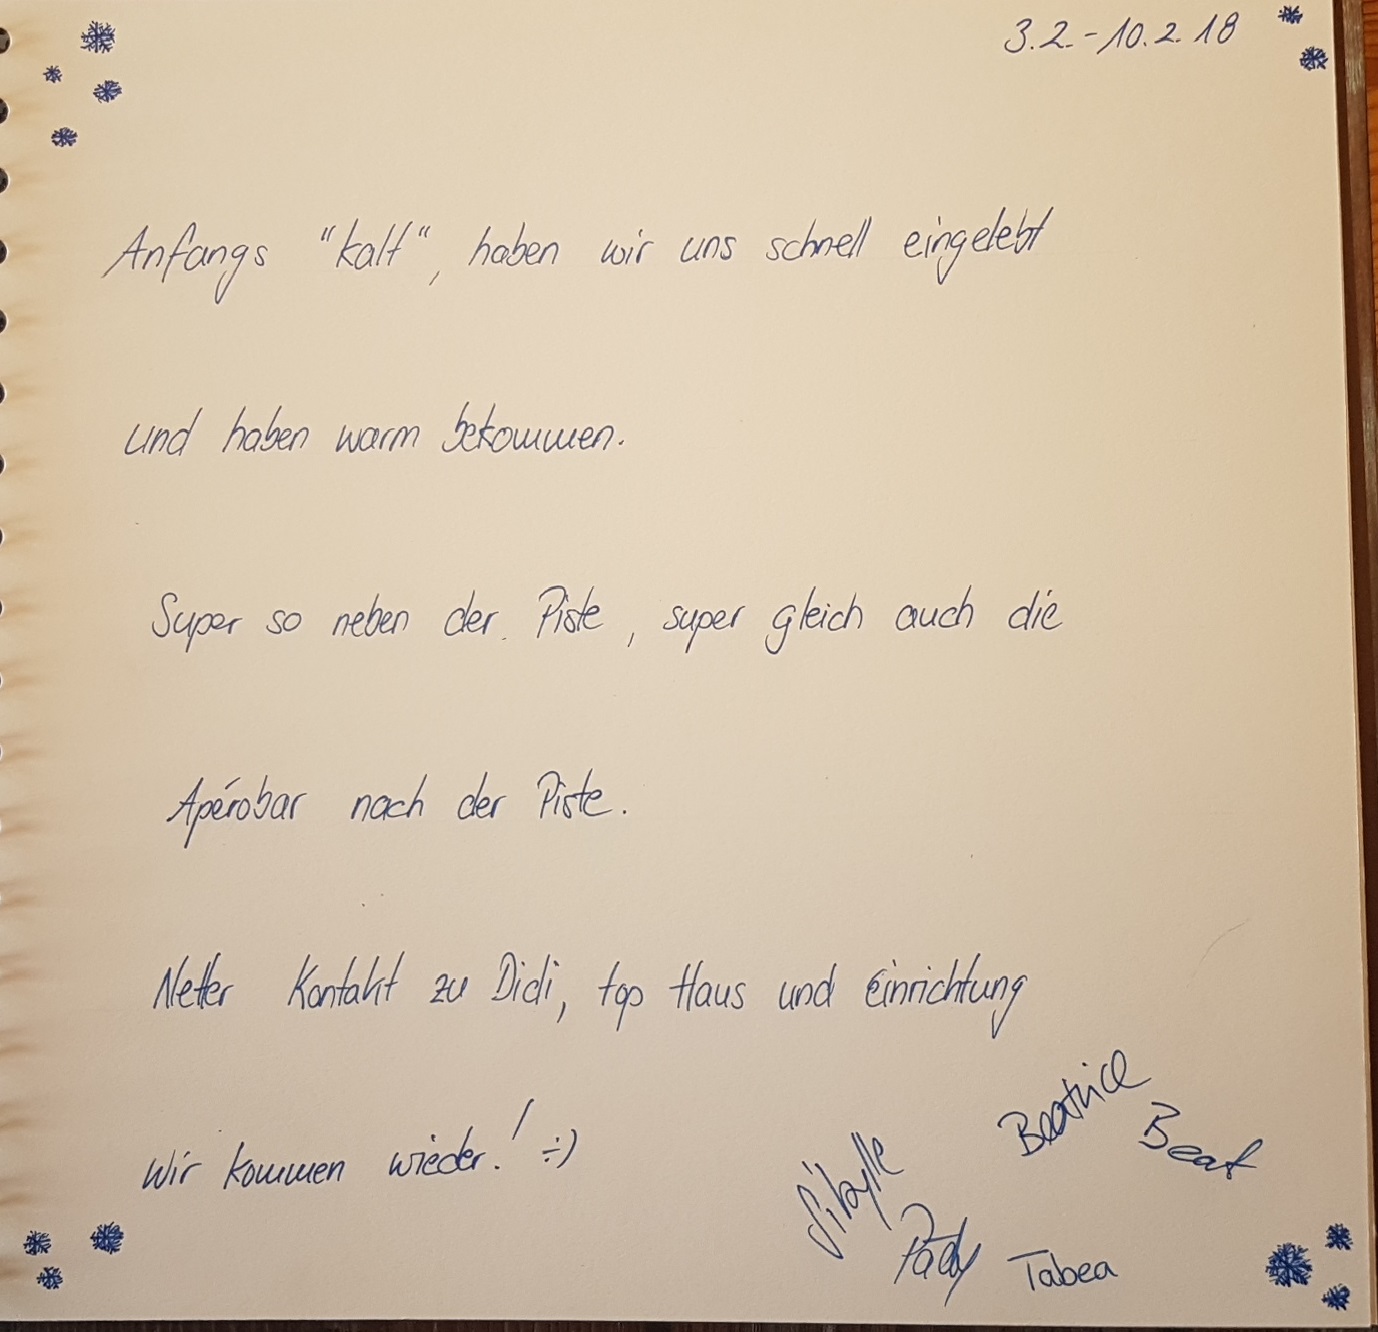 3.2.-10.2.18
Anfangs "kalt", haben wir uns schnell eingelebt
und haben warm bekommen.
Super so neben der Piste, super gleich auch die
Apérobar nach der Piste.
Netter Kontakt zu Didi, top Haus und Einrichtung
Wir kommen wieder! :-)
Beatrice
Beat
Sibylle
Pady
Tabea